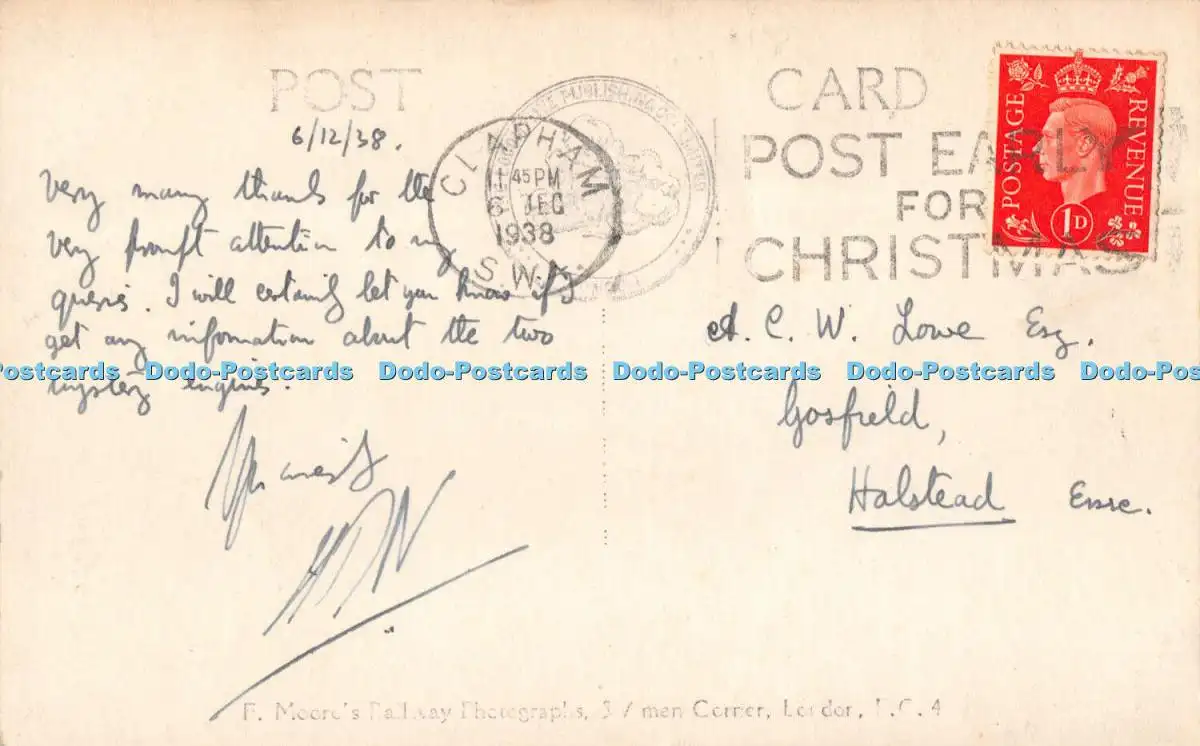 POST CARD
6/12/38.
Very many thanks for the
very prompt attention to my
queries. I will certainly let you know if I
get any information about the two
mystery engines.
Yrs sincerely
HDN
CLAPHAM
45 PM
6 DEC
1938
S.W.
POST EARLY
FOR
CHRISTMAS
POSTAGE
REVENUE
1D
A. C. W. Lowe Esq.
Gosfield,
Halstead Essex.
Dodo-Postcards Dodo-Postcards Dodo-Postcards Dodo-Postcards Dodo-Postcards
F. Moore's Railway Photographs, men Corner, London, E.C.4